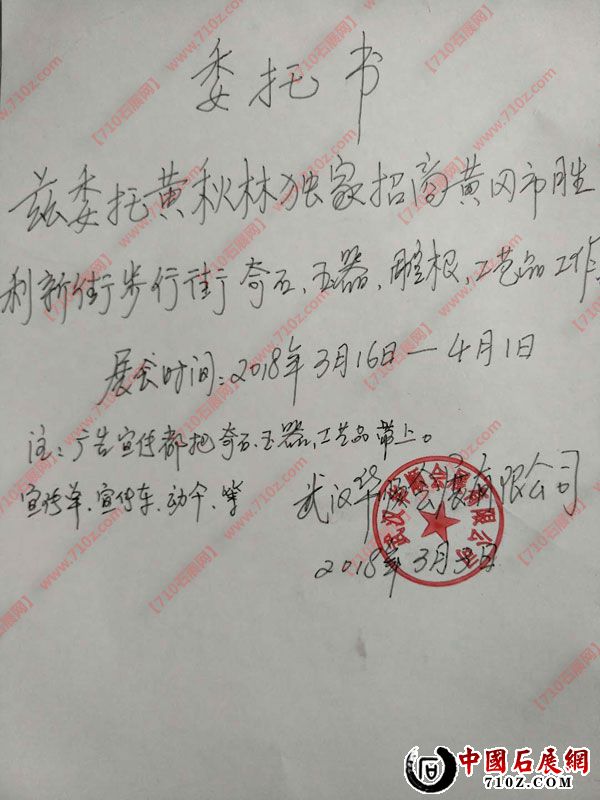 委托书
兹委托黄秋林独家招商黄冈市胜
利新街步行街奇石、玉器、雕根、工艺品工作。
展会时间:2018年3月16日—4月1日
注:广告宣传都把奇石、玉器、工艺品带上。
宣传单、宣传车、动个、等
武汉华 会展有限公司
2018年3月 日
中國石展網
710Z.COM
【710石展网】www.710z.com